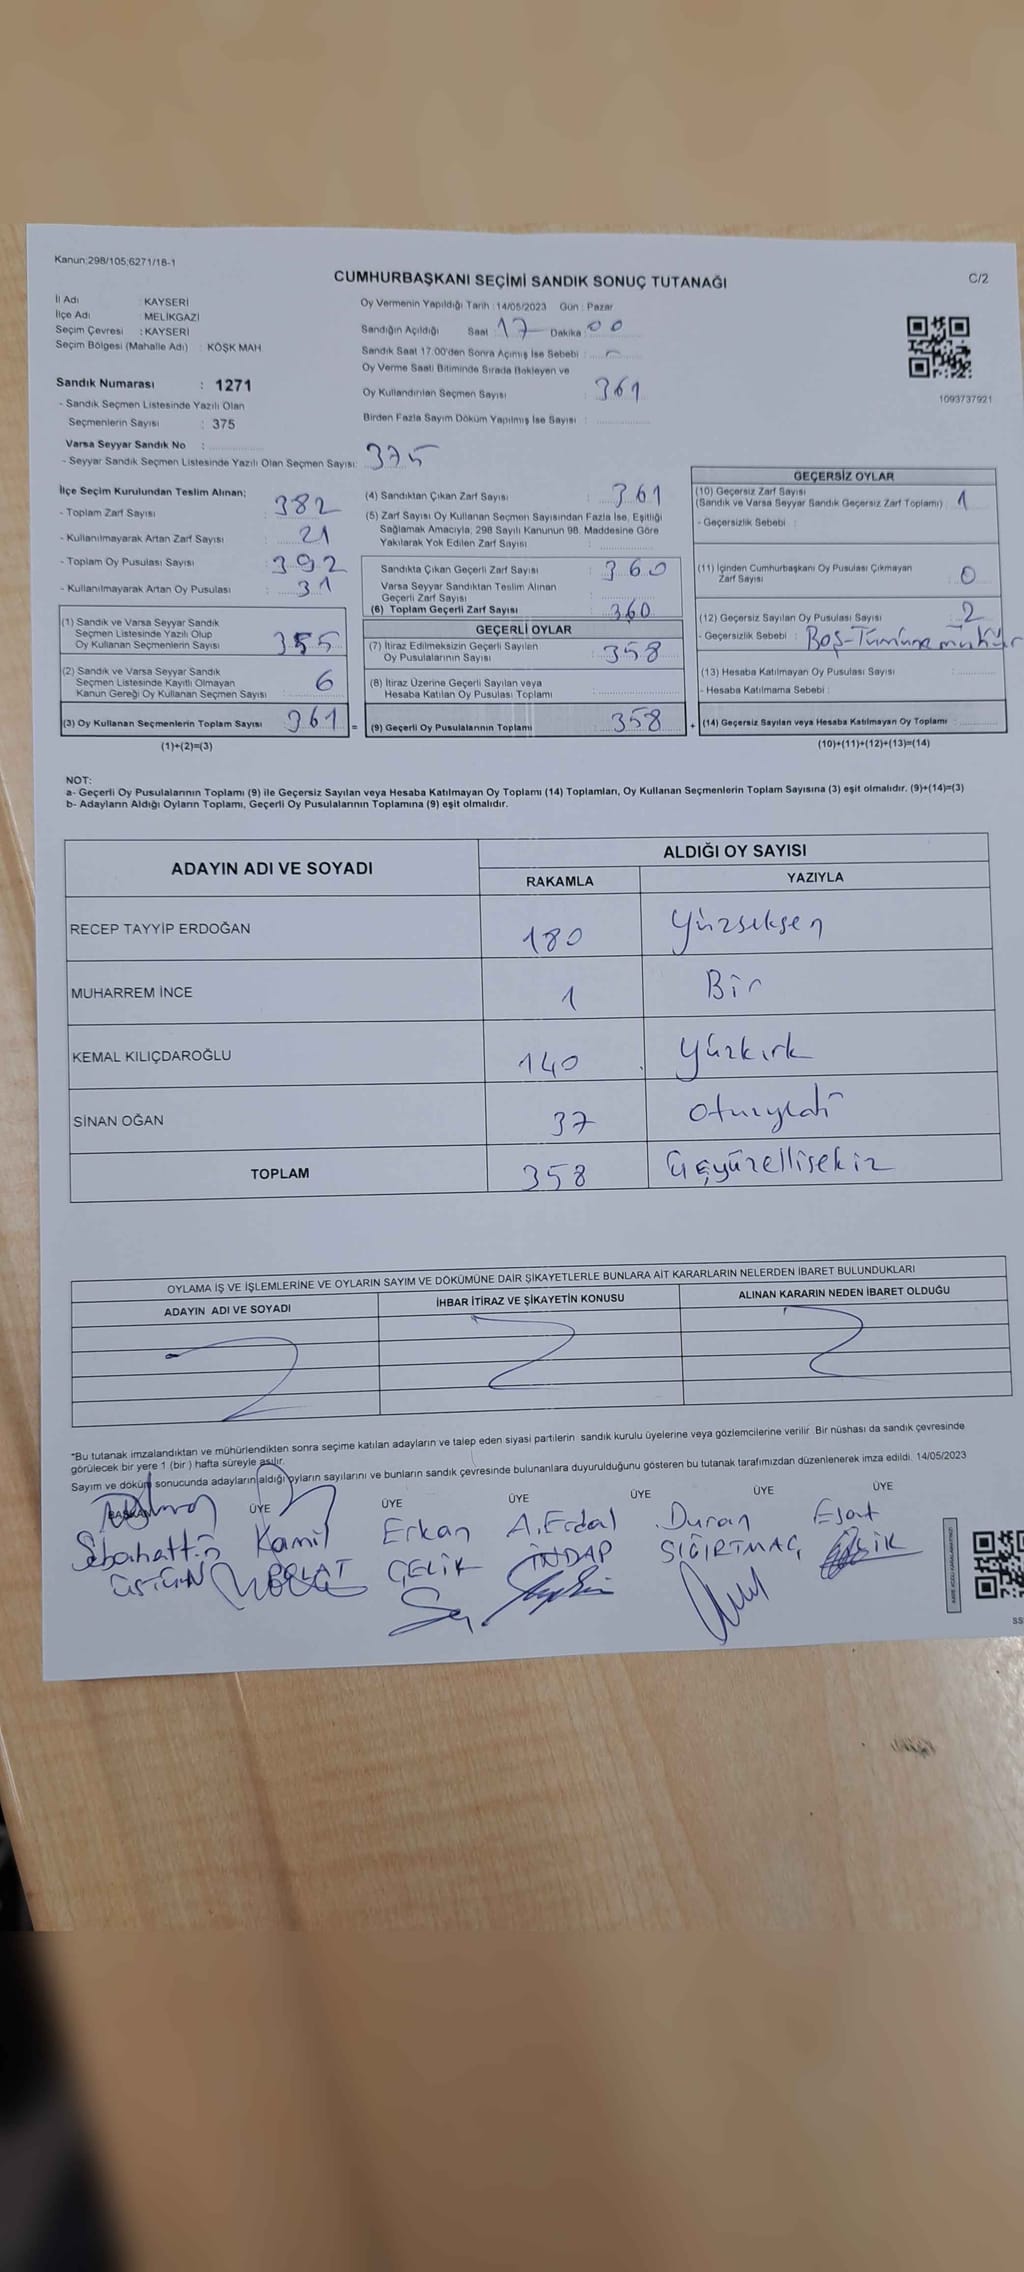 Kanun:298/105;6271/18-1
CUMHURBAŞKANI SEÇİMİ SANDIK SONUÇ TUTANAĞI
C/2
İl Adı : KAYSERİ
İlçe Adı : MELİKGAZİ
Seçim Çevresi : KAYSERİ
Seçim Bölgesi (Mahalle Adı) : KÖŞK MAH.
Sandık Numarası : 1271
- Sandık Seçmen Listesinde Yazılı Olan
Seçmenlerin Sayısı : 375
Varsa Seyyar Sandık No :
- Seyyar Sandık Seçmen Listesinde Yazılı Olan Seçmen Sayısı: 375
Oy Vermenin Yapıldığı Tarih : 14/05/2023 Gün : Pazar
Sandığın Açıldığı Saat : 17 Dakika : 00
Sandık Saat 17.00'den Sonra Açımış İse Sebebi :
Oy Verme Saati Bitiminde Sırada Bekleyen ve
Oy Kullandırılan Seçmen Sayısı : 361
Birden Fazla Sayım Döküm Yapılmış İse Sayısı :
1093737921
İlçe Seçim Kurulundan Teslim Alınan;
- Toplam Zarf Sayısı : 382
- Kullanılmayarak Artan Zarf Sayısı : 21
- Toplam Oy Pusulası Sayısı : 392
- Kullanılmayarak Artan Oy Pusulası : 31
(1) Sandık ve Varsa Seyyar Sandık
Seçmen Listesinde Yazılı Olup
Oy Kullanan Seçmenlerin Sayısı 355
(2) Sandık ve Varsa Seyyar Sandık
Seçmen Listesinde Kayıtlı Olmayan
Kanun Gereği Oy Kullanan Seçmen Sayısı : 6
(3) Oy Kullanan Seçmenlerin Toplam Sayısı 361
(1)+(2)=(3)
(4) Sandıktan Çıkan Zarf Sayısı : 361
(5) Zarf Sayısı Oy Kullanan Seçmen Sayısından Fazla İse, Eşitliği
Sağlamak Amacıyla, 298 Sayılı Kanunun 98. Maddesine Göre
Yakılarak Yok Edilen Zarf Sayısı :
Sandıkta Çıkan Geçerli Zarf Sayısı : 360
Varsa Seyyar Sandıktan Teslim Alınan
Geçerli Zarf Sayısı :
(6) Toplam Geçerli Zarf Sayısı : 360
GEÇERLİ OYLAR
(7) İtiraz Edilmeksizin Geçerli Sayılan
Oy Pusulalarının Sayısı : 358
(8) İtiraz Üzerine Geçerli Sayılan veya
Hesaba Katılan Oy Pusulası Toplamı :
= (9) Geçerli Oy Pusulalarının Toplamı 358 +
GEÇERSİZ OYLAR
(10) Geçersiz Zarf Sayısı
(Sandık ve Varsa Seyyar Sandık Geçersiz Zarf Toplamı) : 1
- Geçersizlik Sebebi :
(11) İçinden Cumhurbaşkanı Oy Pusulası Çıkmayan
Zarf Sayısı : 0
(12) Geçersiz Sayılan Oy Pusulası Sayısı : 2
- Geçersizlik Sebebi : Boş-Tümüne mühür
(13) Hesaba Katılmayan Oy Pusulası Sayısı :
- Hesaba Katılmama Sebebi :
(14) Geçersiz Sayılan veya Hesaba Katılmayan Oy Toplamı :
(10)+(11)+(12)+(13)=(14)
NOT:
a- Geçerli Oy Pusulalarının Toplamı (9) ile Geçersiz Sayılan veya Hesaba Katılmayan Oy Toplamı (14) Toplamları, Oy Kullanan Seçmenlerin Toplam Sayısına (3) eşit olmalıdır. (9)+(14)=(3)
b- Adayların Aldığı Oyların Toplamı, Geçerli Oy Pusulalarının Toplamına (9) eşit olmalıdır.
ADAYIN ADI VE SOYADI ALDIĞI OY SAYISI
RAKAMLA YAZIYLA
RECEP TAYYİP ERDOĞAN 180 Yüzseksen
MUHARREM İNCE 1 Bir
KEMAL KILIÇDAROĞLU 140 Yüzkırk
SİNAN OĞAN 37 Otuzyedi
TOPLAM 358 Üçyüzellisekiz
OYLAMA İŞ VE İŞLEMLERİNE VE OYLARIN SAYIM VE DÖKÜMÜNE DAİR ŞİKAYETLERLE BUNLARA AİT KARARLARIN NELERDEN İBARET BULUNDUKLARI
ADAYIN ADI VE SOYADI İHBAR İTİRAZ VE ŞİKAYETİN KONUSU ALINAN KARARIN NEDEN İBARET OLDUĞU
*Bu tutanak imzalandıktan ve mühürlendikten sonra seçime katılan adayların ve talep eden siyasi partilerin sandık kurulu üyelerine veya gözlemcilerine verilir. Bir nüshası da sandık çevresinde
görülecek bir yere 1 (bir ) hafta süreyle asılır.
Sayım ve döküm sonucunda adayların aldığı oyların sayılarını ve bunların sandık çevresinde bulunanlara duyurulduğunu gösteren bu tutanak tarafımızdan düzenlenerek imza edildi. 14/05/2023
BAŞKAN ÜYE ÜYE ÜYE ÜYE ÜYE ÜYE
Sebahattin Kamil Erkan A.Erdal Duran Esat
ÜSTÜN POLAT ÇELİK İNDAP SIĞIRTMAÇ